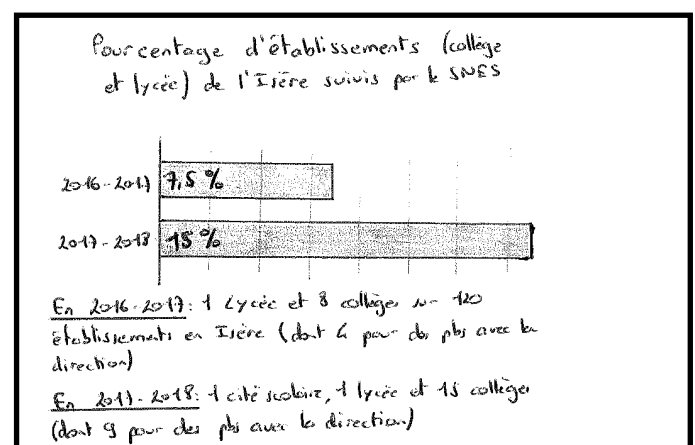 Pourcentage d'établissements (collège
et lycée) de l'Isère suivis par le SNES
2016-2017 7,5 %
2017-2018 15 %
En 2016-2017: 1 Lycée et 8 collèges sur 120
établissements en Isère (dont 4 pour des pbs avec la
direction)
En 2017-2018: 1 cité scolaire, 1 lycée et 15 collèges
(dont 9 pour des pbs avec la direction)